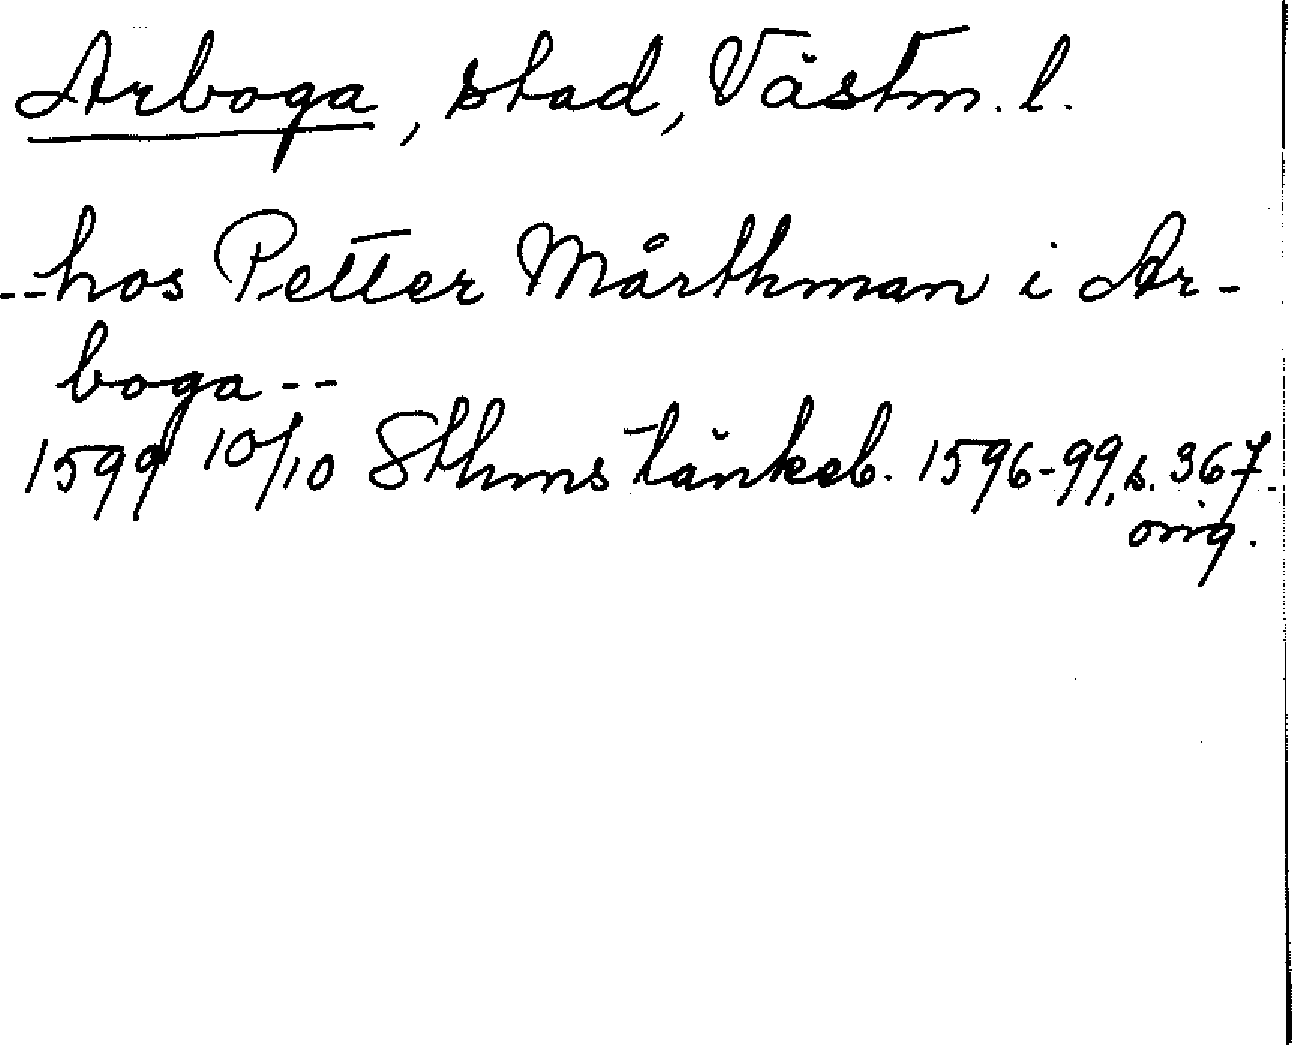 Arboga, stad, Västm. l.
--hos Petter Mårthman i Ar-
boga--
1599 10/10 Sthms tänkeb. 1596-99, s. 367.
orig.